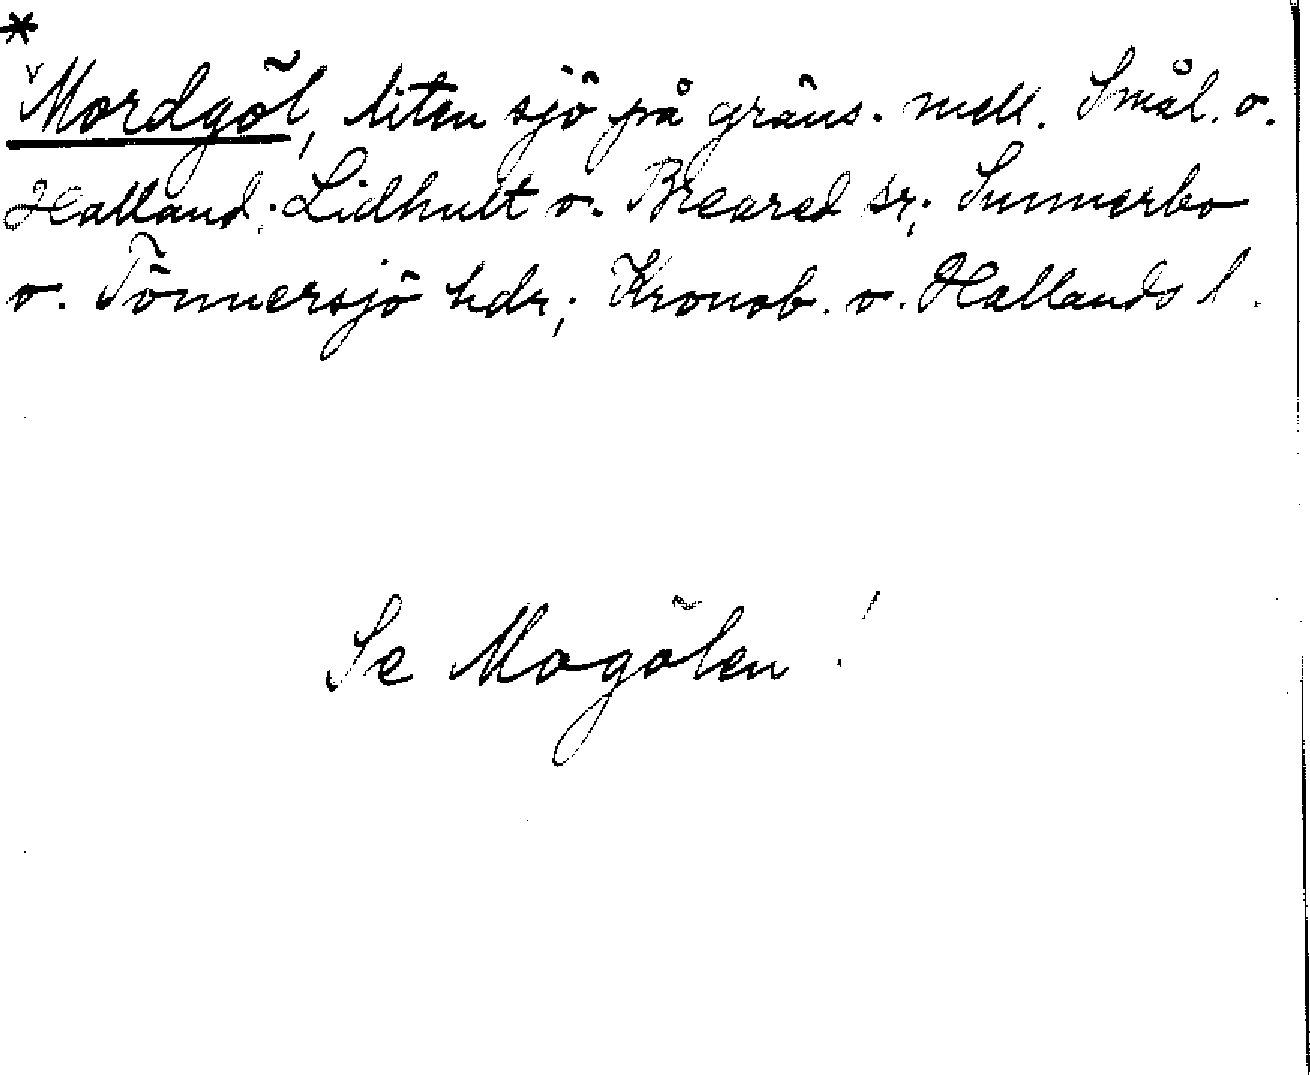 *
Mordgöl, liten sjö på gräns. mell. Smål. o.
Halland; Lidhult o. Breared sr; Sunnerbo
o. Tönnersjö hdr; Kronob. o. Hallands l.
Se Mogölen!